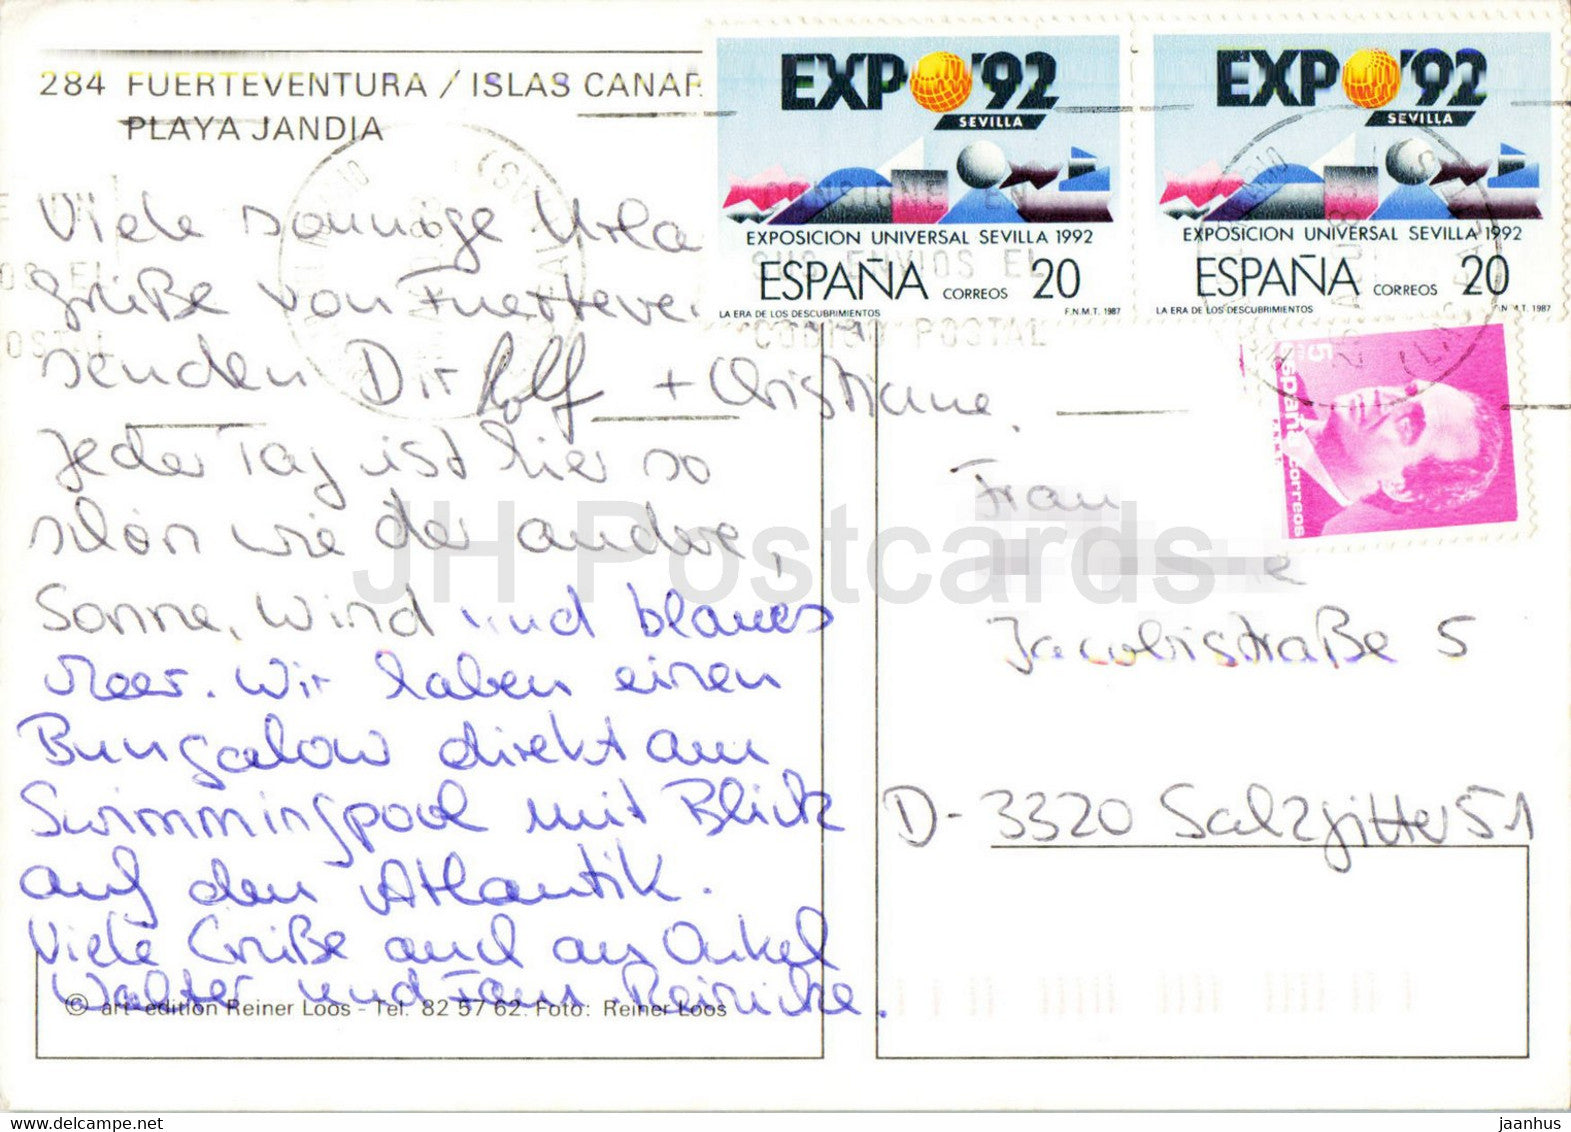 284 FUERTEVENTURA / ISLAS CANAR
PLAYA JANDIA
Viele sonnige Urla
Grüße von Fuerteve
senden Dir Rolf + Christiane.
Jeder Tag ist hier so
schön wie der andere,
Sonne, Wind und blaues
Meer. Wir haben einen
Bungalow direkt am
Swimmingpool mit Blick
auf den Atlantik.
Viele Grüße auch an Onkel
Walter und Fam. Reinicke.
© art-edition Reiner Loos - Tel. 82 57 62. Foto: Reiner Loos
EXPO '92
SEVILLA
EXPOSICION UNIVERSAL SEVILLA 1992
ESPAÑA CORREOS 20
LA ERA DE LOS DESCUBRIMIENTOS F.N.M.T. 1987
EXPO '92
SEVILLA
EXPOSICION UNIVERSAL SEVILLA 1992
ESPAÑA CORREOS 20
LA ERA DE LOS DESCUBRIMIENTOS F.N.M.T. 1987
CONSIGNE EN
SUS ENVIOS EL
CODIGO POSTAL
5
España correos
F.N.M.T.
Frau
Jacobistraße 5
D-3320 Salzgitter 51
JH Postcards
www.delcampe.net
jaanhus